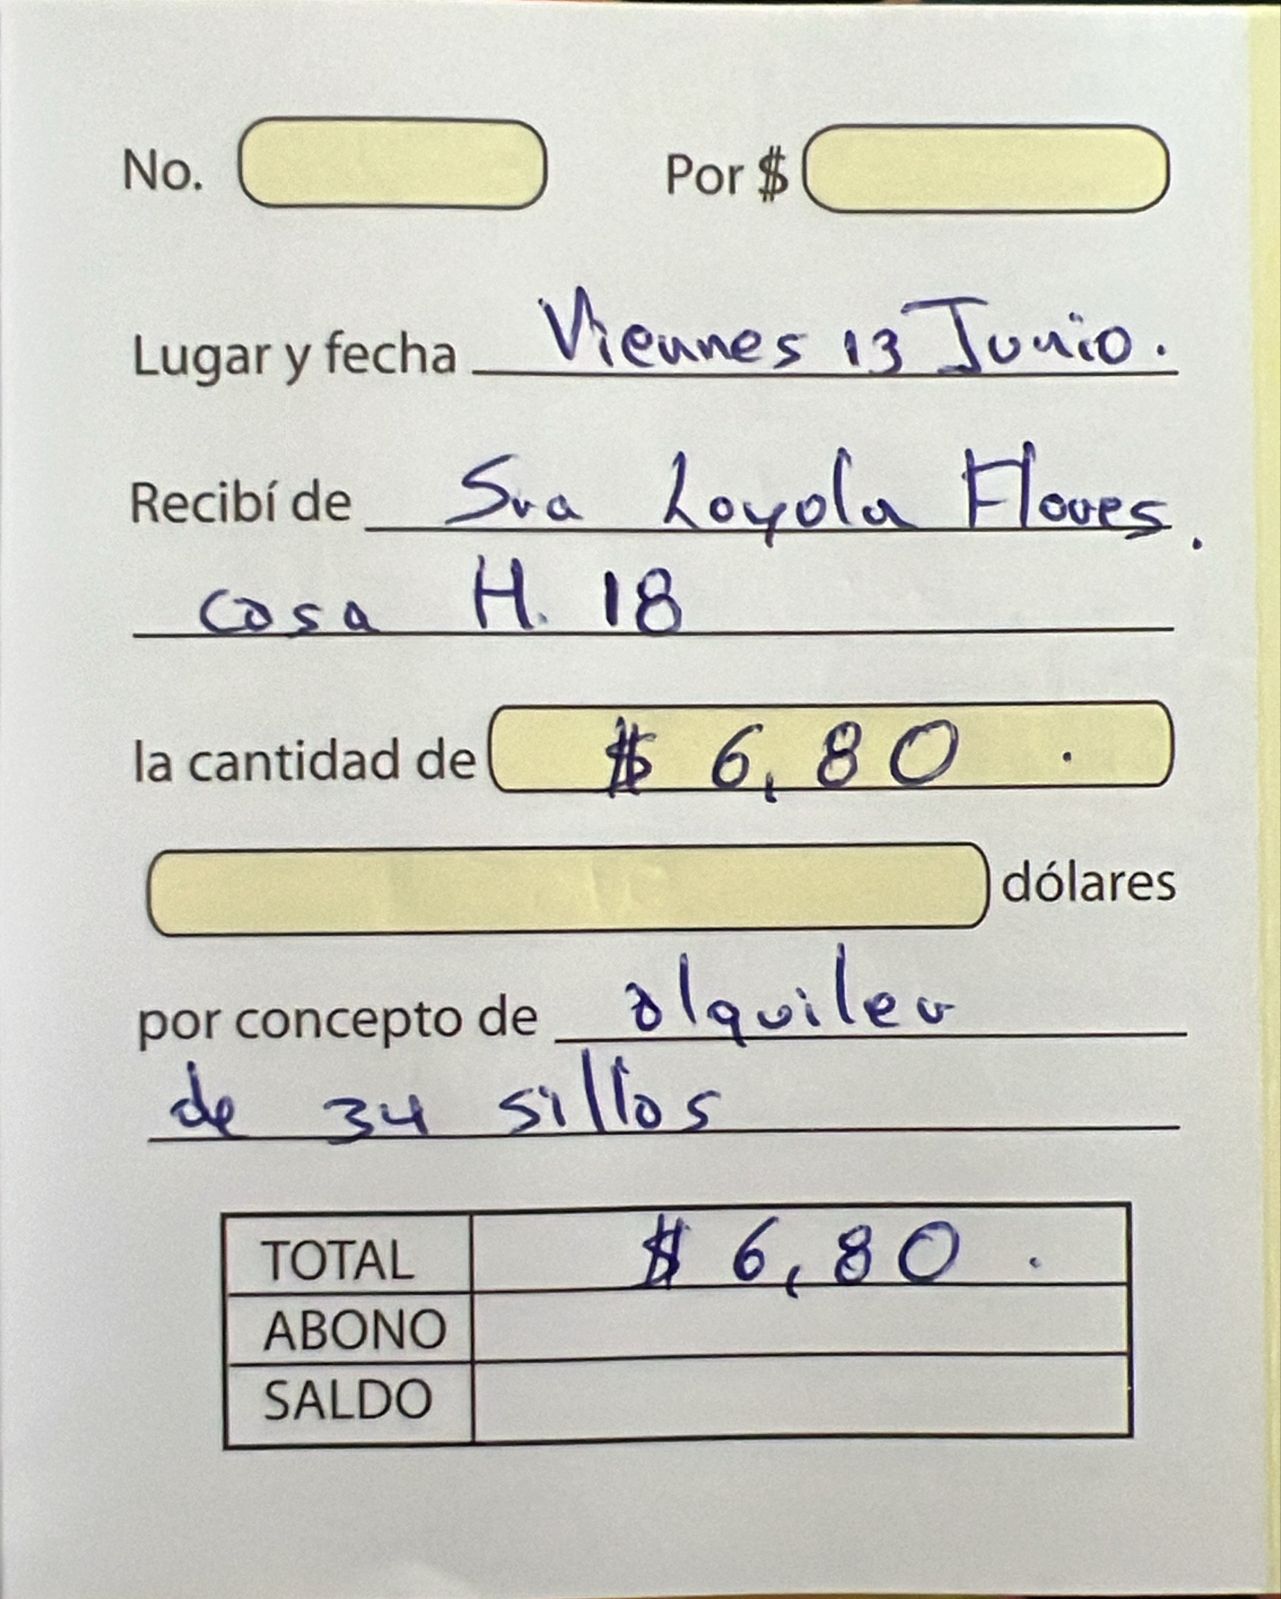 No. Por $
Lugar y fecha Viernes 13 Junio.
Recibí de Sra Loyola Flores.
casa H. 18
la cantidad de $ 6,80 .
dólares
por concepto de alquiler
de 34 sillas
TOTAL $ 6,80 .
ABONO
SALDO